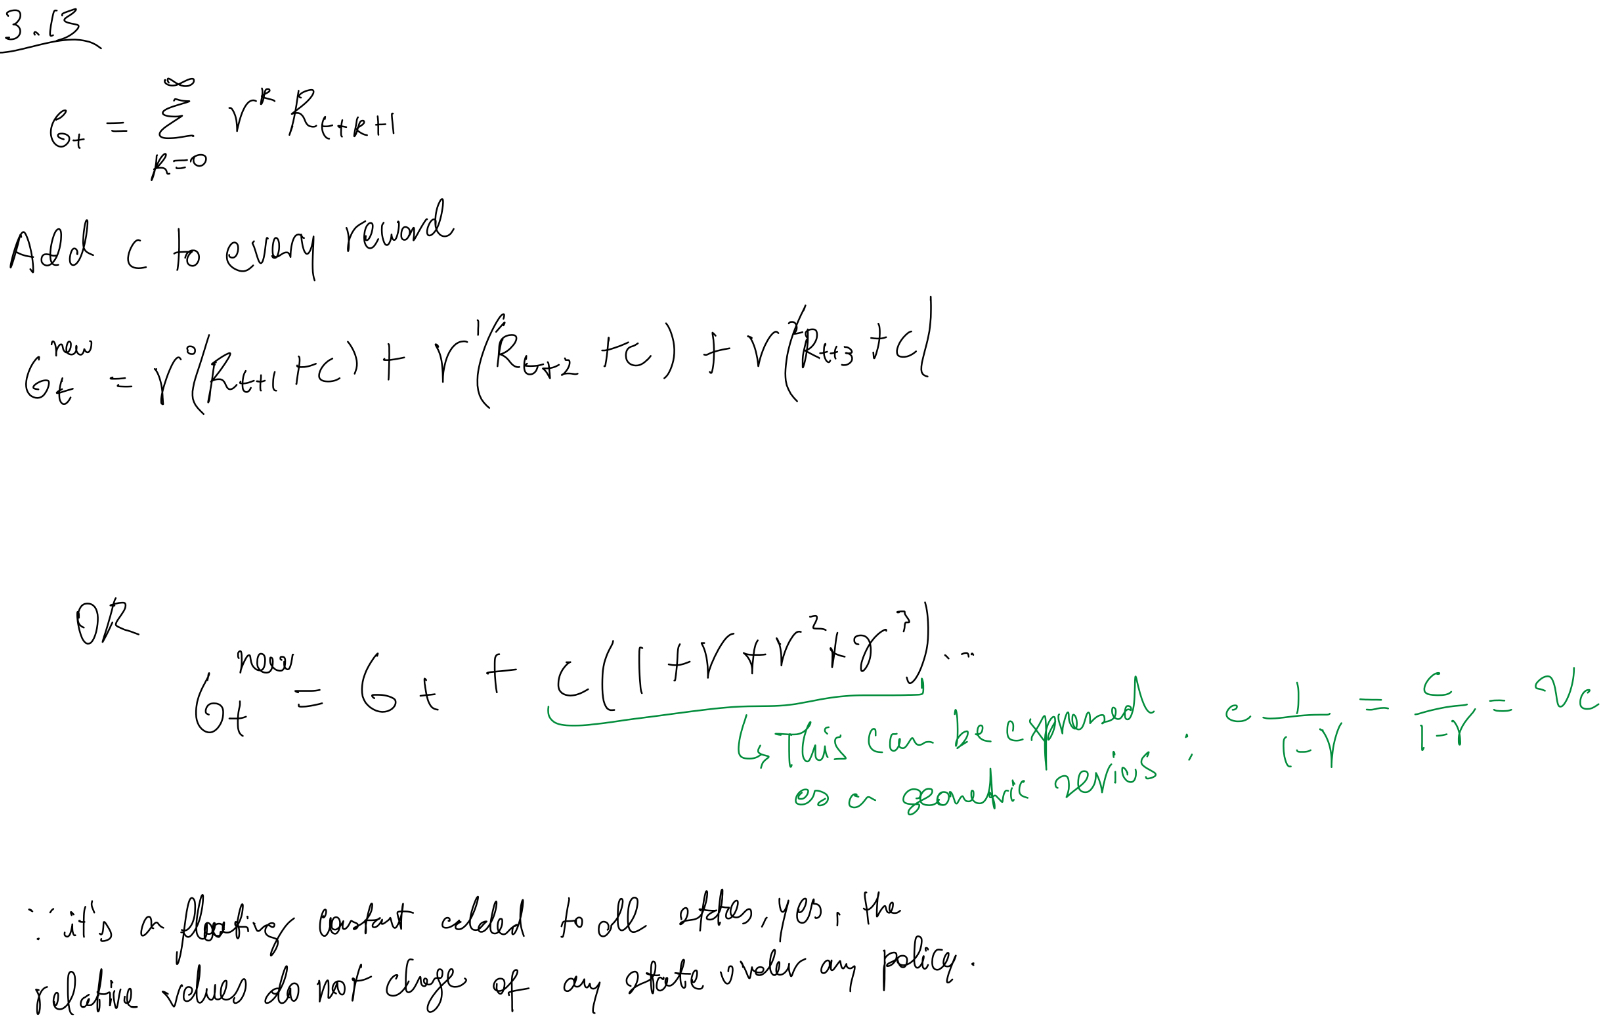 3.13
G_t = ∞ Σ k=0 γ^k R_{t+k+1}
Add c to every reward
G_t^{new} = γ^0(R_{t+1} + c) + γ^1(R_{t+2} + c) + γ^2(R_{t+3} + c)
OR
G_t^{new} = G_t + c(1 + γ + γ^2 + γ^3)...
↳ This can be expressed
as a geometric series : c 1/(1-γ) = c/(1-γ) = Vc
∵ it's a floating constant added to all states, yes, the
relative values do not change of any state under any policy.